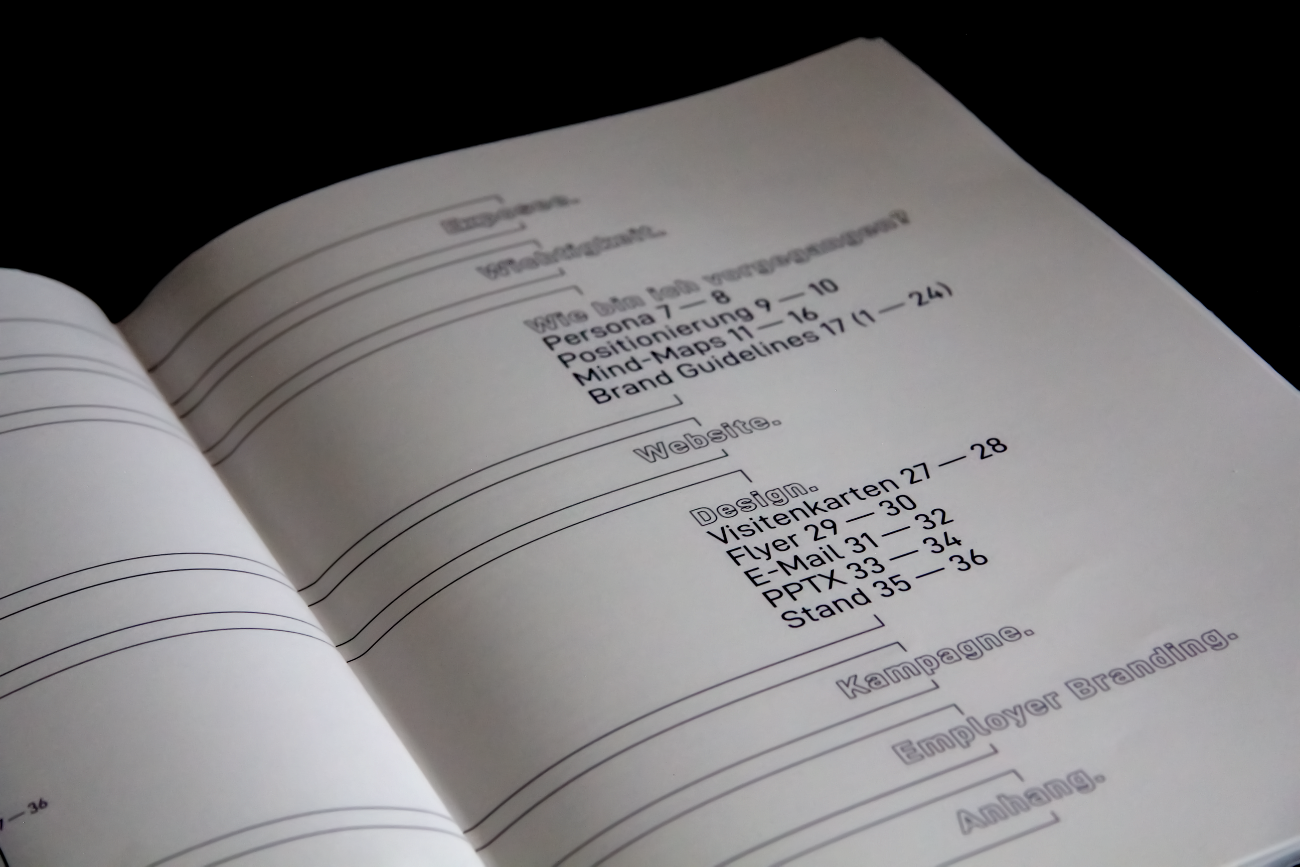 7 — 36
Exposee.
Wichtigkeit.
Wie bin ich vorgegangen?
Persona 7 — 8
Positionierung 9 — 10
Mind-Maps 11 — 16
Brand Guidelines 17 (1 — 24)
Website.
Design.
Visitenkarten 27 — 28
Flyer 29 — 30
E-Mail 31 — 32
PPTX 33 — 34
Stand 35 — 36
Kampagne.
Employer Branding.
Anhang.